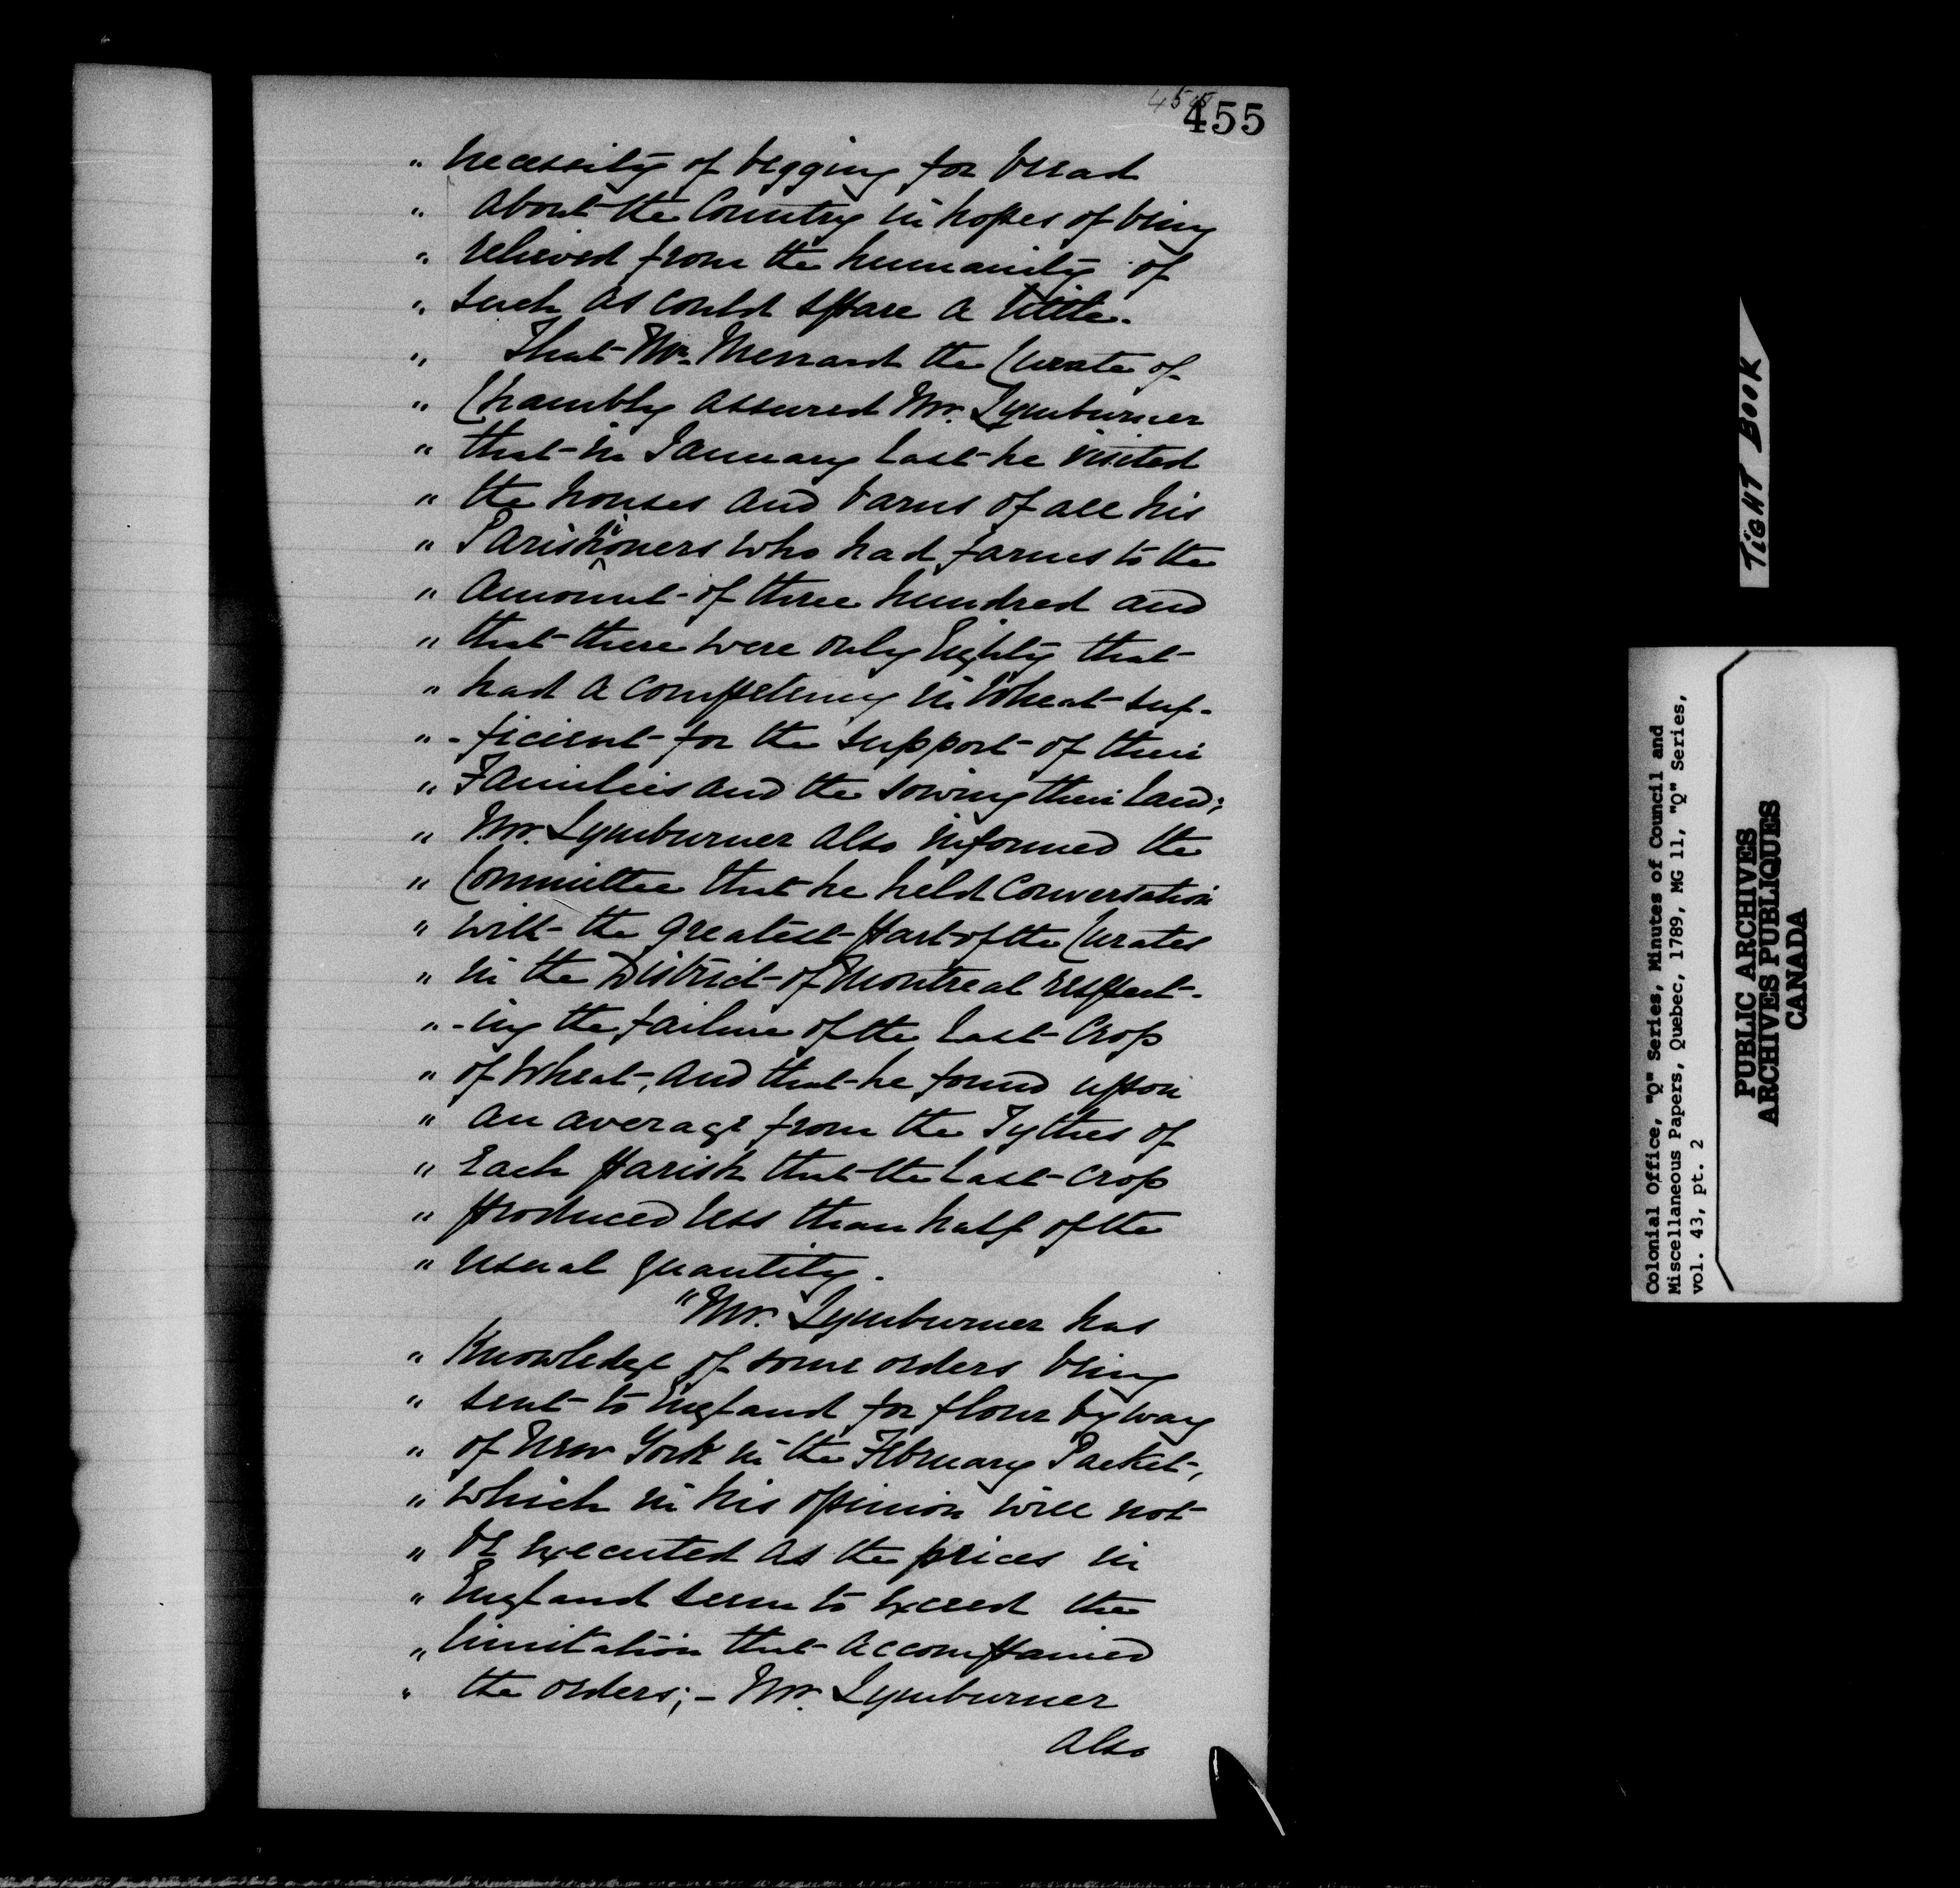 455
455
" necessity of begging for bread
" about the Country in hopes of being
" relieved from the humanity of
" such as could spare a little.
" That Mr. Mennard the Curate of
" Chambly assured Mr. Lymburner
" that in January last he visited
" the houses and barns of all his
" Parishioners who had farms to the
" Amount of three hundred and
" that there were only Eighty that
" had a competency in Wheat suf-
" -ficient for the support of their
" Families and the sowing their Land;
" Mr. Lymburner also informed the
" Committee that he held Conversation
" with the greatest part of the Curates
" in the District of Montreal respect-
" -ing the failure of the last Crop
" of Wheat, and that he found upon
" an average from the Tythes of
" Each parish that the last crop
" produced less than half of the
" usual quantity.
" Mr. Lymburner has
" Knowledge of some orders being
" sent to England for flour by way
" of New York in the February Packet,
" which in his opinion will not
" be executed as the prices in
" England seem to exceed the
" limitation that accompanied
" the orders; - Mr. Lymburner
also
TIGHT BOOK
Colonial Office, "Q" Series, Minutes of Council and
Miscellaneous Papers, Quebec, 1789, MG 11, "Q" Series,
vol. 43, pt. 2
PUBLIC ARCHIVES
ARCHIVES PUBLIQUES
CANADA